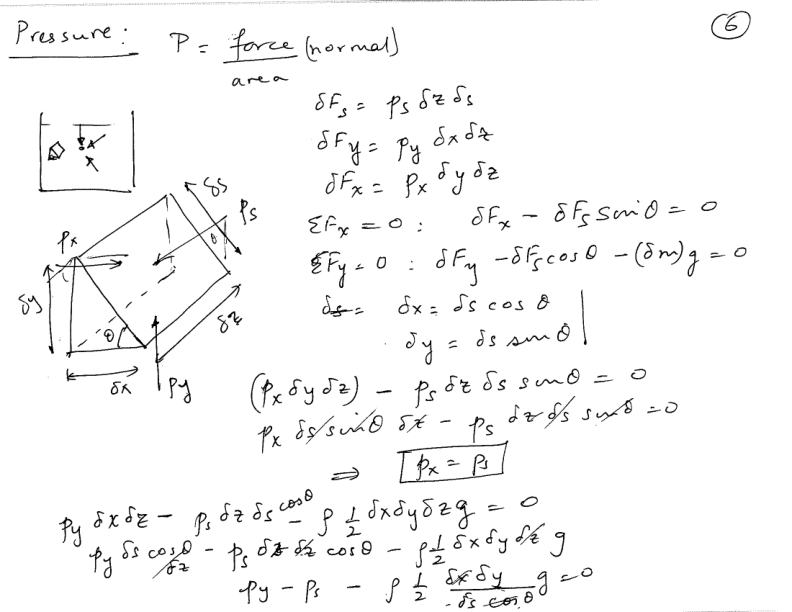 6
Pressure: P = force (normal) / area
δF_s = p_s δz δs
δF_y = p_y δx δz
δF_x = p_x δy δz
ΣF_x = 0 : δF_x − δF_s sinθ = 0
ΣF_y = 0 : δF_y − δF_s cosθ − (δm)g = 0
δs = δx = δs cos θ
δy = δs sinθ
δs
p_s
p_x
θ
δy
θ
δz
δx
p_y
(p_x δy δz) − p_s δz δs sinθ = 0
p_x δs sinθ δz − p_s δz δs sinθ = 0
⇒ p_x = p_s
p_y δx δz − p_s δz δs cosθ − ρ 1/2 δx δy δz g = 0
p_y δs cosθ δz − p_s δz δs cosθ − ρ 1/2 δx δy δz g
p_y − p_s − ρ 1/2 δx δy / δs cosθ g = 0